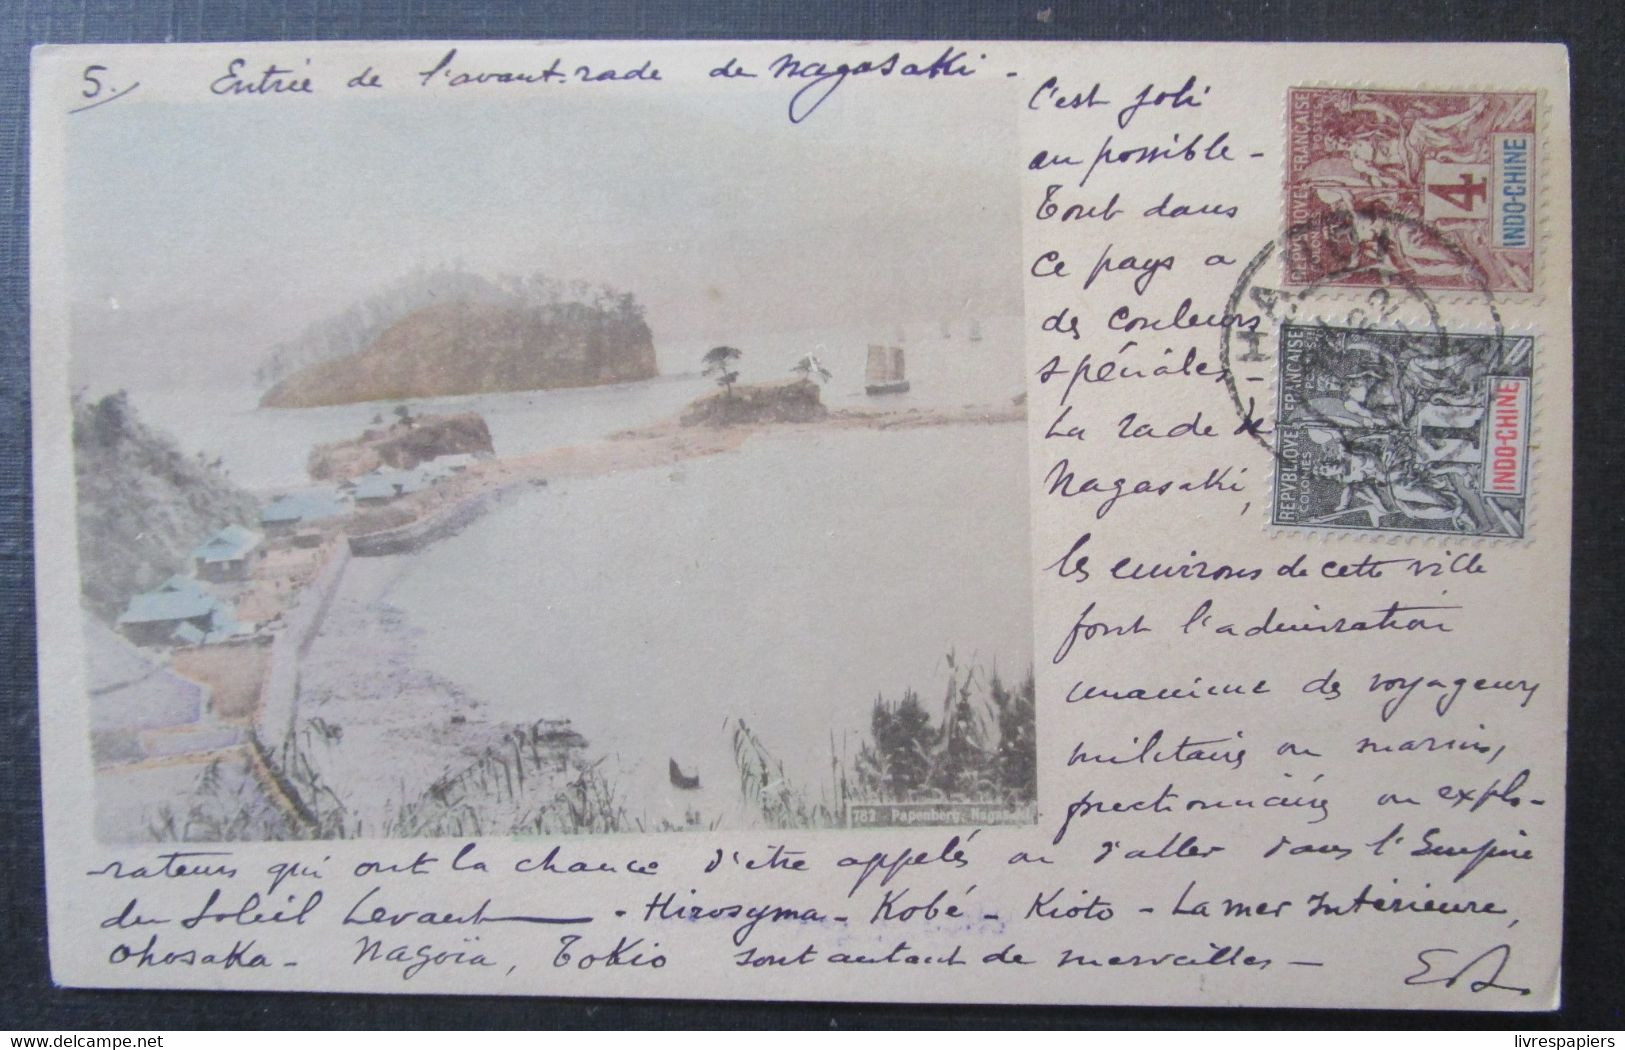 5. Entrée de l'avant-rade de Nagasaki -
C'est joli
au possible -
Tout dans
ce pays a
des couleurs
spéciales -
La rade de
Nagasaki,
les environs de cette ville
font l'admiration
unanime des voyageurs
militaires ou marins,
fonctionnaires ou explo-
-rateurs qui ont la chance d'être appelés ou d'aller dans l'Empire
du Soleil Levant - Hirosyma - Kobé - Kioto - La mer Intérieure,
Ohosaka - Nagoïa, Tokio sont autant de merveilles -
REPVBLIQVE FRANCAISE
COLONIES
POSTES
4
INDO-CHINE
REPVBLIQVE FRANCAISE
COLONIES
POSTES
1
INDO-CHINE
782 - Papenberg, Nagasaki.
livrespapiers